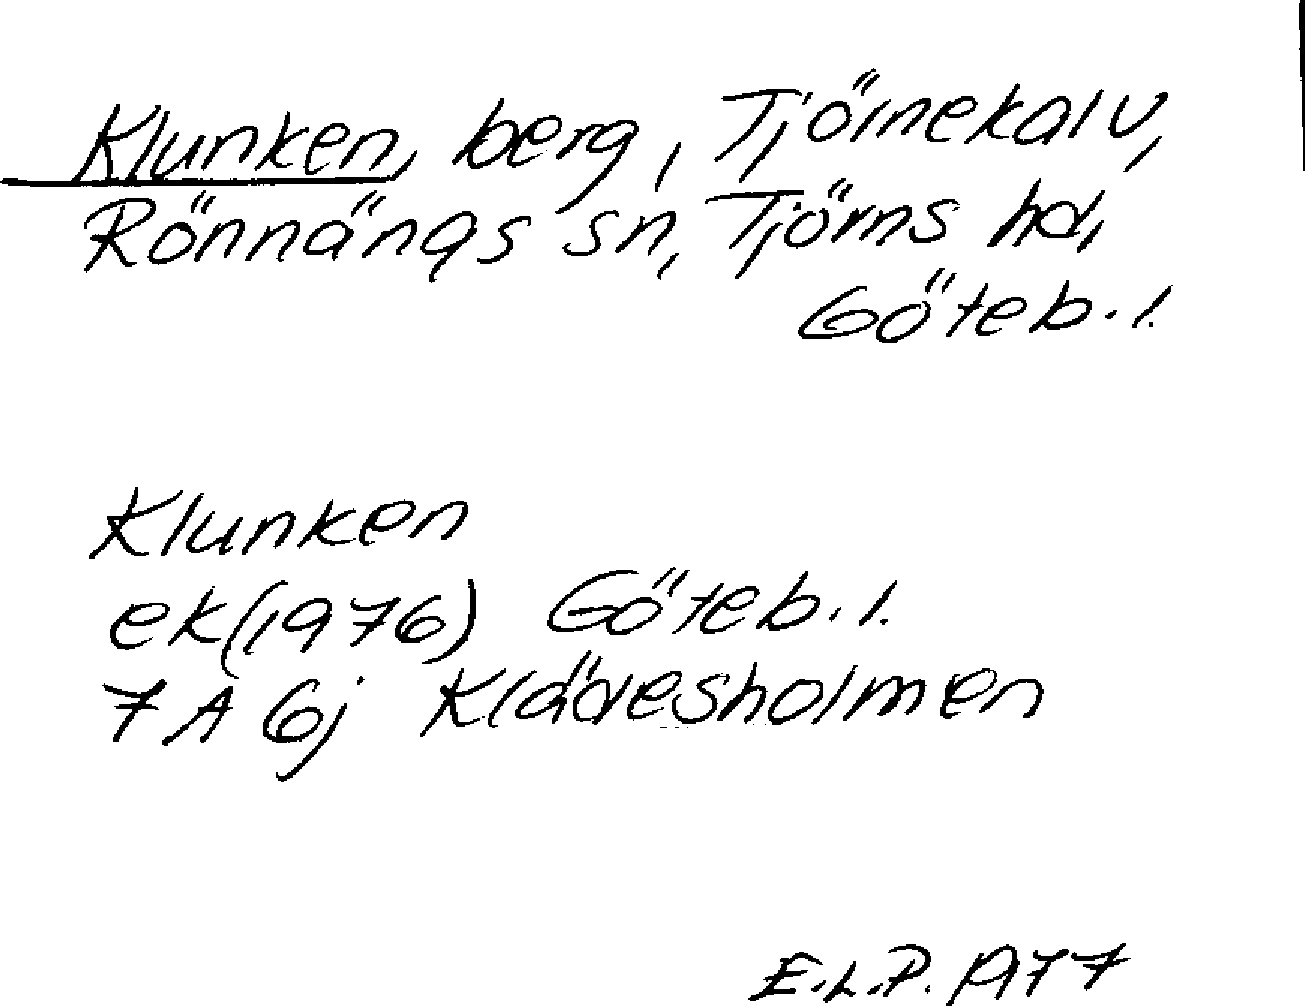 Klunken, berg, Tjörnekalv,
Rönnängs sn, Tjörns hd,
Göteb. l.
Klunken
ek(1976) Göteb. l.
7 A 6j Klädesholmen
E.L.P. 1977